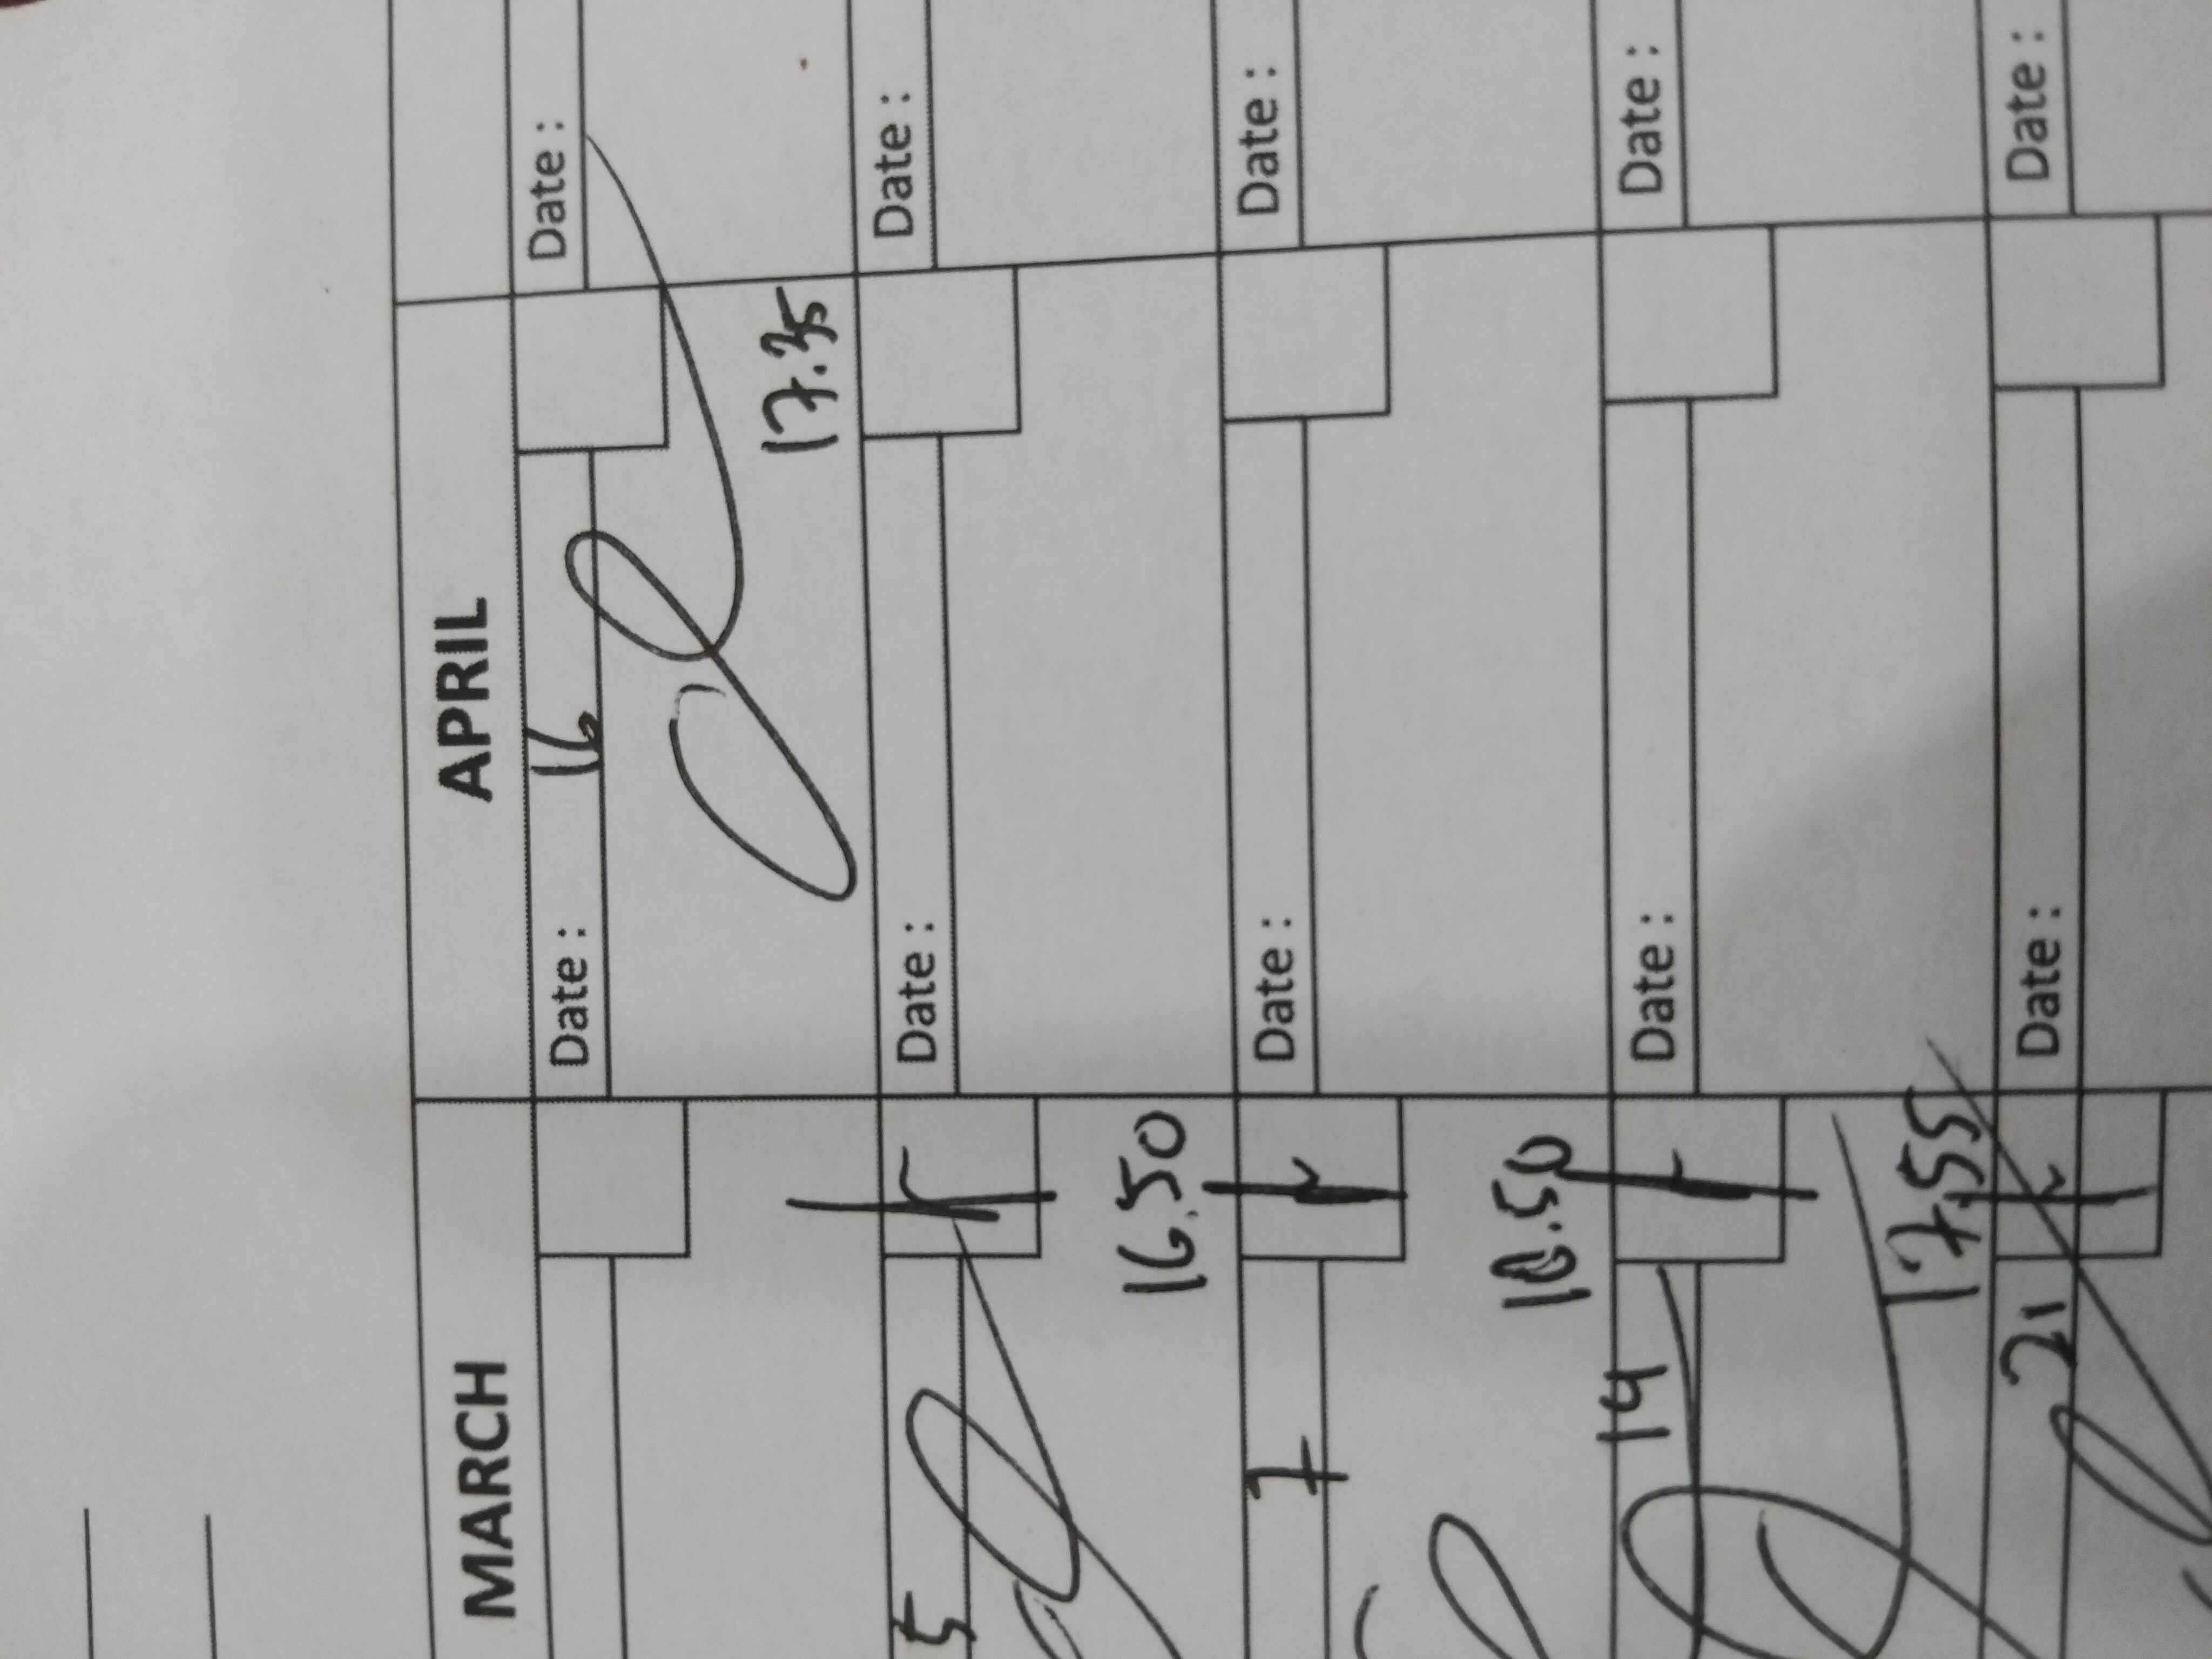 MARCH APRIL
Date : 16 Date :
17.35
5 Date : Date :
16.50
7 Date : Date :
18.50
14 Date : Date :
17.55
21 Date : Date :